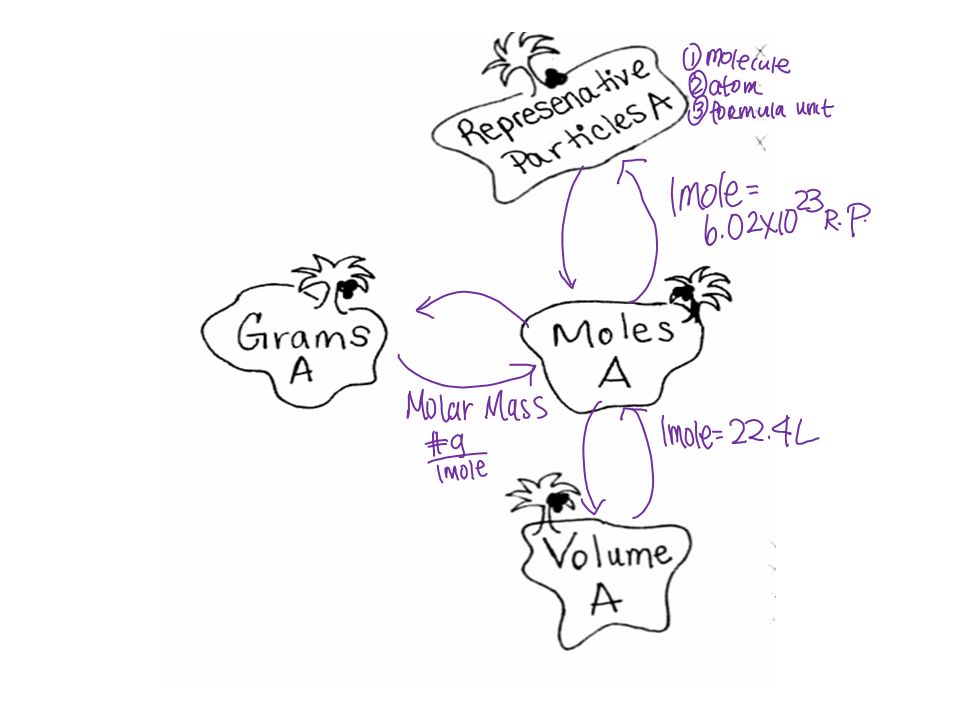 Represenative
Particles A
① molecule
② atom
③ formula unit
1mole=
6.02x10²³ R.P.
Grams
A
Moles
A
Molar Mass
#g
1mole
1mole=22.4L
Volume
A